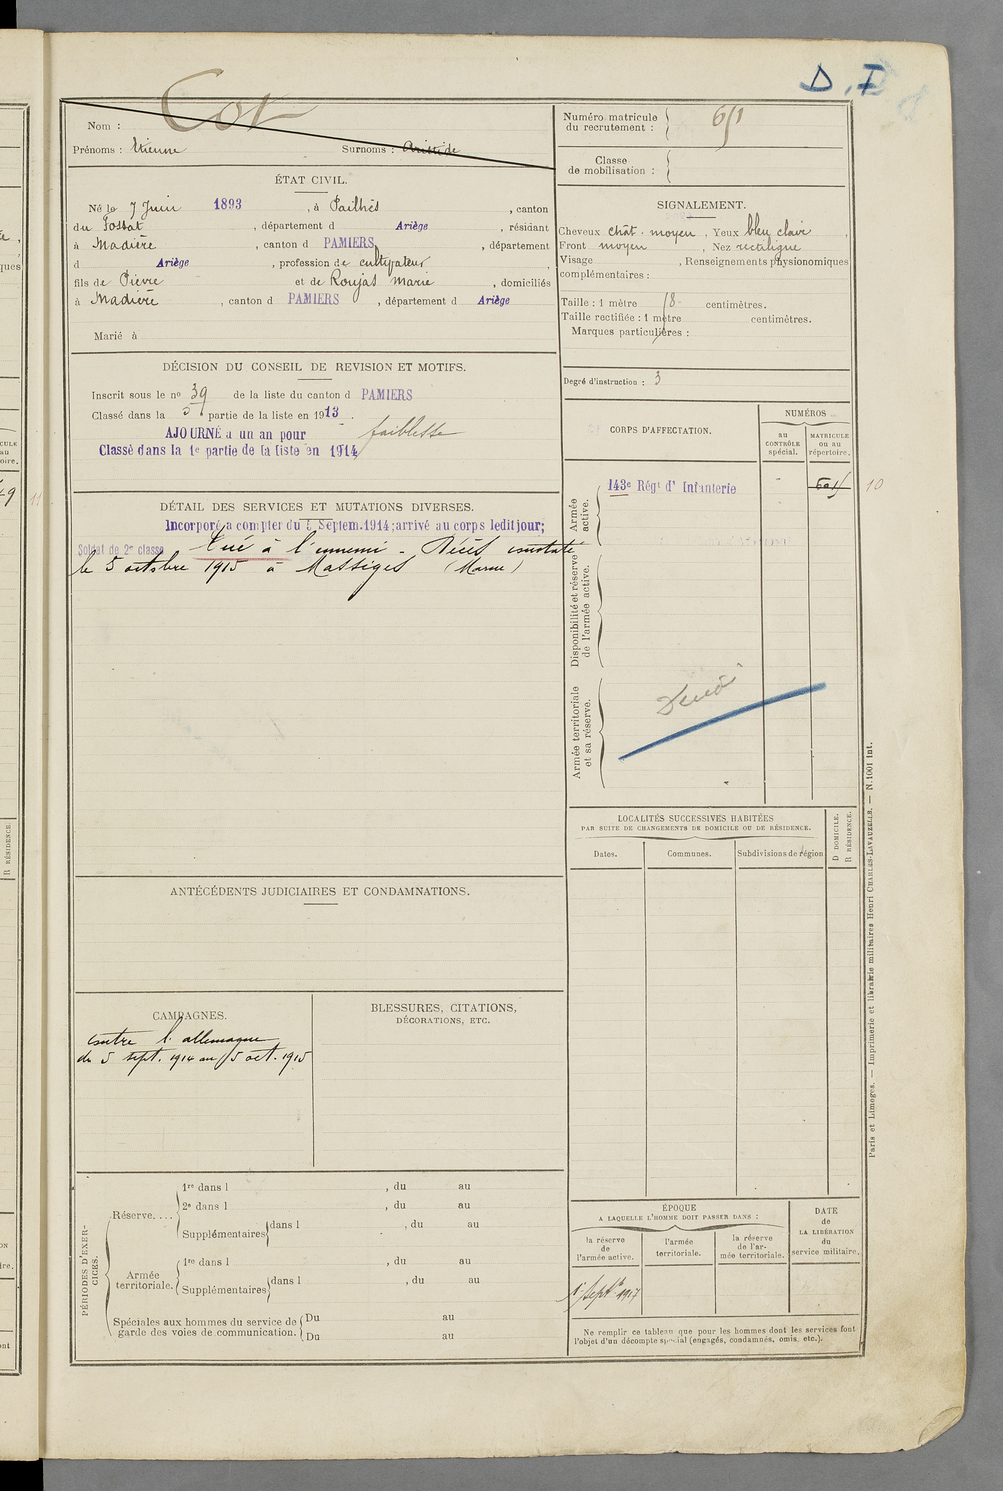 D. D
Nom : Cot
Prénoms : Etienne Surnoms : Aristide
ÉTAT CIVIL.
Né le 7 Juin 1893, à Pailhès, canton
du Fossat, département d Ariège, résidant
à Madière, canton d PAMIERS, département
d Ariège, profession de cultivateur,
fils de Pierre et de Roujas Marie, domiciliés
à Madière, canton d PAMIERS, département d Ariège
Marié à
DÉCISION DU CONSEIL DE REVISION ET MOTIFS.
Inscrit sous le no 39 de la liste du canton d PAMIERS
Classé dans la 5 partie de la liste en 1913.
AJOURNÉ à un an pour faiblesse
Classé dans la 1e partie de la liste en 1914
DÉTAIL DES SERVICES ET MUTATIONS DIVERSES.
Incorporé a compter du 5 Septem. 1914; arrivé au corps ledit jour;
Soldat de 2e classe Tué à l'ennemi - Décès constaté
le 5 octobre 1915 à Massiges (Marne)
ANTÉCÉDENTS JUDICIAIRES ET CONDAMNATIONS.
CAMPAGNES.
contre l'allemagne
du 5 sept. 1914 au 5 oct. 1915
BLESSURES, CITATIONS,
DÉCORATIONS, ETC.
PÉRIODES D'EXERCICES.
Réserve....
1re dans l , du au
2e dans l , du au
Supplémentaires dans l , du au
Armée territoriale.
1re dans l , du au
Supplémentaires dans l , du au
Spéciales aux hommes du service de garde des voies de communication.
Du au
Du au
Numéro matricule du recrutement : 651
Classe de mobilisation :
SIGNALEMENT.
Cheveux chât. moyen, Yeux bleu clair,
Front moyen, Nez rectiligne
Visage , Renseignements physionomiques
complémentaires :
Taille : 1 mètre 58 centimètres.
Taille rectifiée : 1 mètre centimètres.
Marques particulières :
Degré d'instruction : 3
CORPS D'AFFECTATION.
NUMÉROS
au CONTRÔLE spécial.
MATRICULE ou au répertoire.
Armée active.
143e Régt d' Infanterie
10
Disponibilité et réserve de l'armée active.
Armée territoriale et sa réserve.
LOCALITÉS SUCCESSIVES HABITÉES
PAR SUITE DE CHANGEMENTS DE DOMICILE OU DE RÉSIDENCE.
Dates.
Communes.
Subdivisions de région
D DOMICILE.
R RÉSIDENCE.
ÉPOQUE
A LAQUELLE L'HOMME DOIT PASSER DANS :
la réserve de l'armée active.
l'armée territoriale.
la réserve de l'armée territoriale.
DATE de LA LIBÉRATION du service militaire.
1er Septbre 1917
Ne remplir ce tableau que pour les hommes dont les services font
l'objet d'un décompte spécial (engagés, condamnés, omis, etc.).
Paris et Limoges. — Imprimerie et librairie militaires Henri CHARLES-LAVAUZELLE. — N. 1001 int.